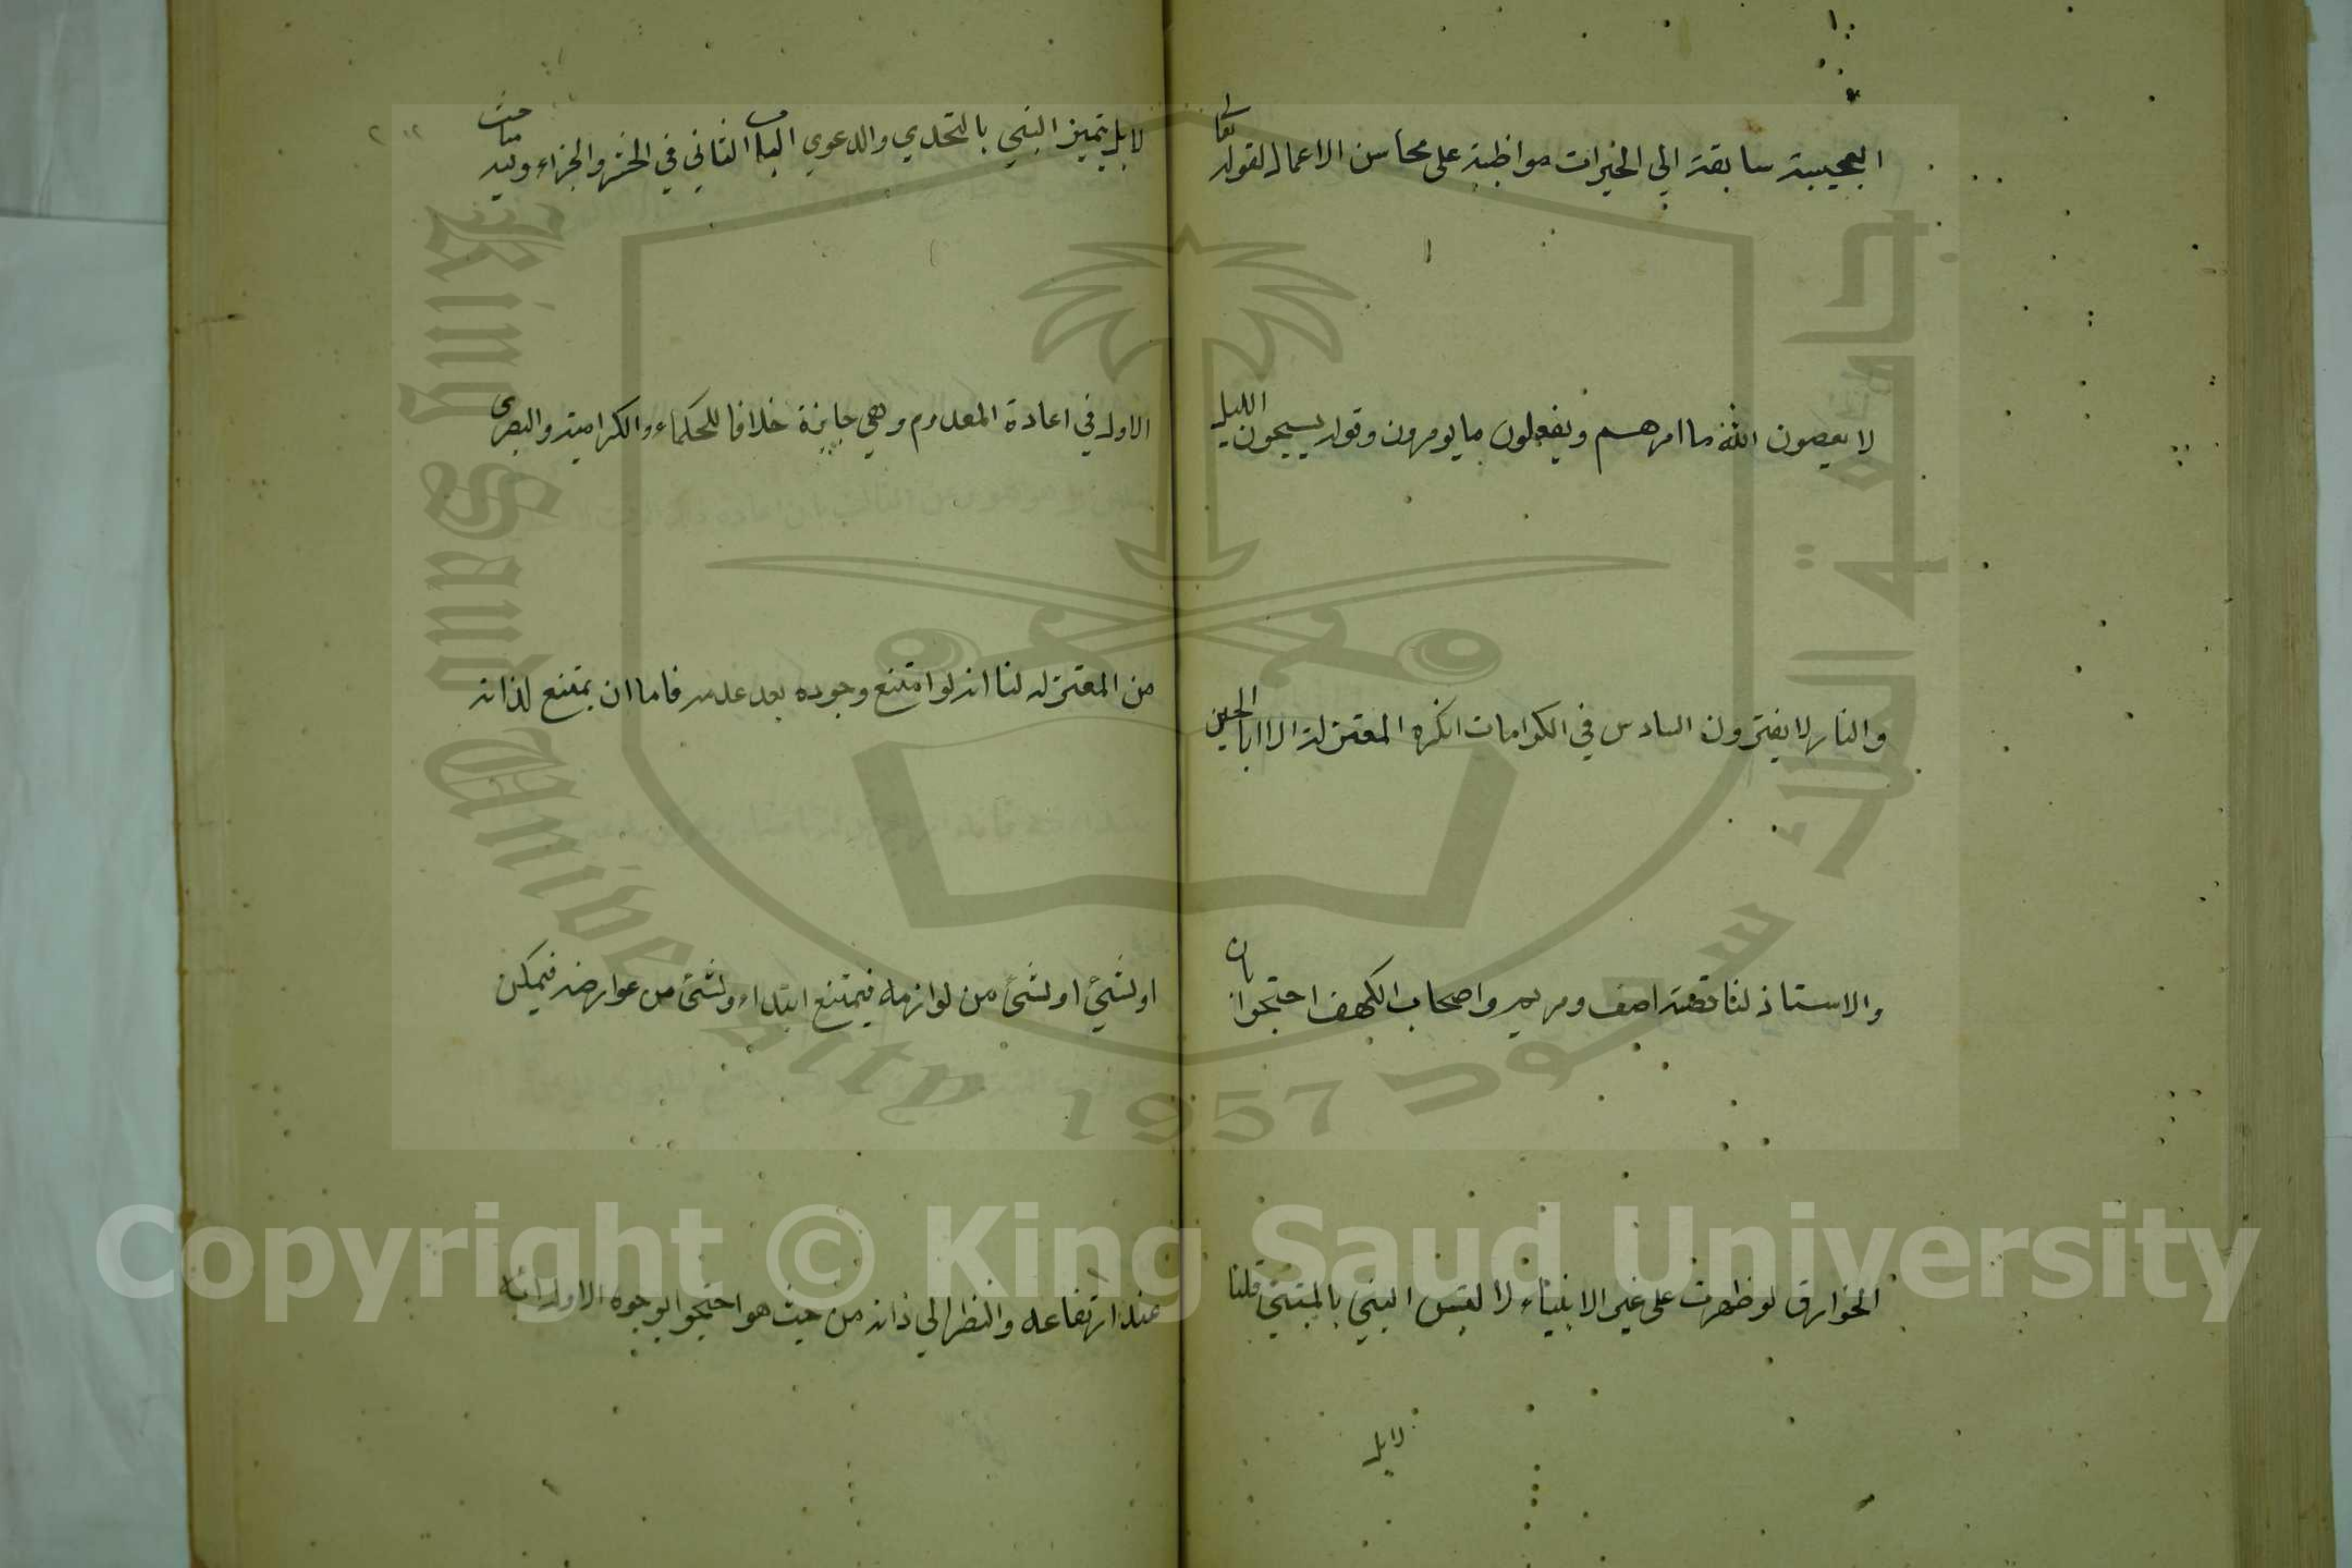 العجيبة سابقة الي الخيرات مواظبة على محاسن الاعمال لقوله تعا
لا يعصون الله ما امرهم ويفعلون ما يومرون وقوله يسبحون الليل
والنار لا يفترون السادس في الكرامات انكره المعتزلة الا ابا الحين
والاستاذ لنا قصة اصف ومريم واصحاب الكهف احتجوا بان
الخوارق لو ظهرت على غير الانبياء لالتبس النبي بالمتنبي قلنا
لا بل
لا بل يتميز النبي بالتحدي والدعوي الباب الثاني في الحشر والجزاء وفيه مباحث
الاول في اعادة المعدوم وهي جايزة خلافا للحكماء والكرامية والبصرى
من المعتزله لنا انه لو امتنع وجوده بعد عدمه فاما ان يمتنع لذاته
او لشيئ من لوازمه فيمتنع ابتداء ولشئ من عوارضه فيمكن
عند ارتفاعه والنظر الي ذاته من حيث هو احتجوا بوجوه الاول انه
King Saud University
1957
جامعة الملك سعود
Copyright © King Saud University